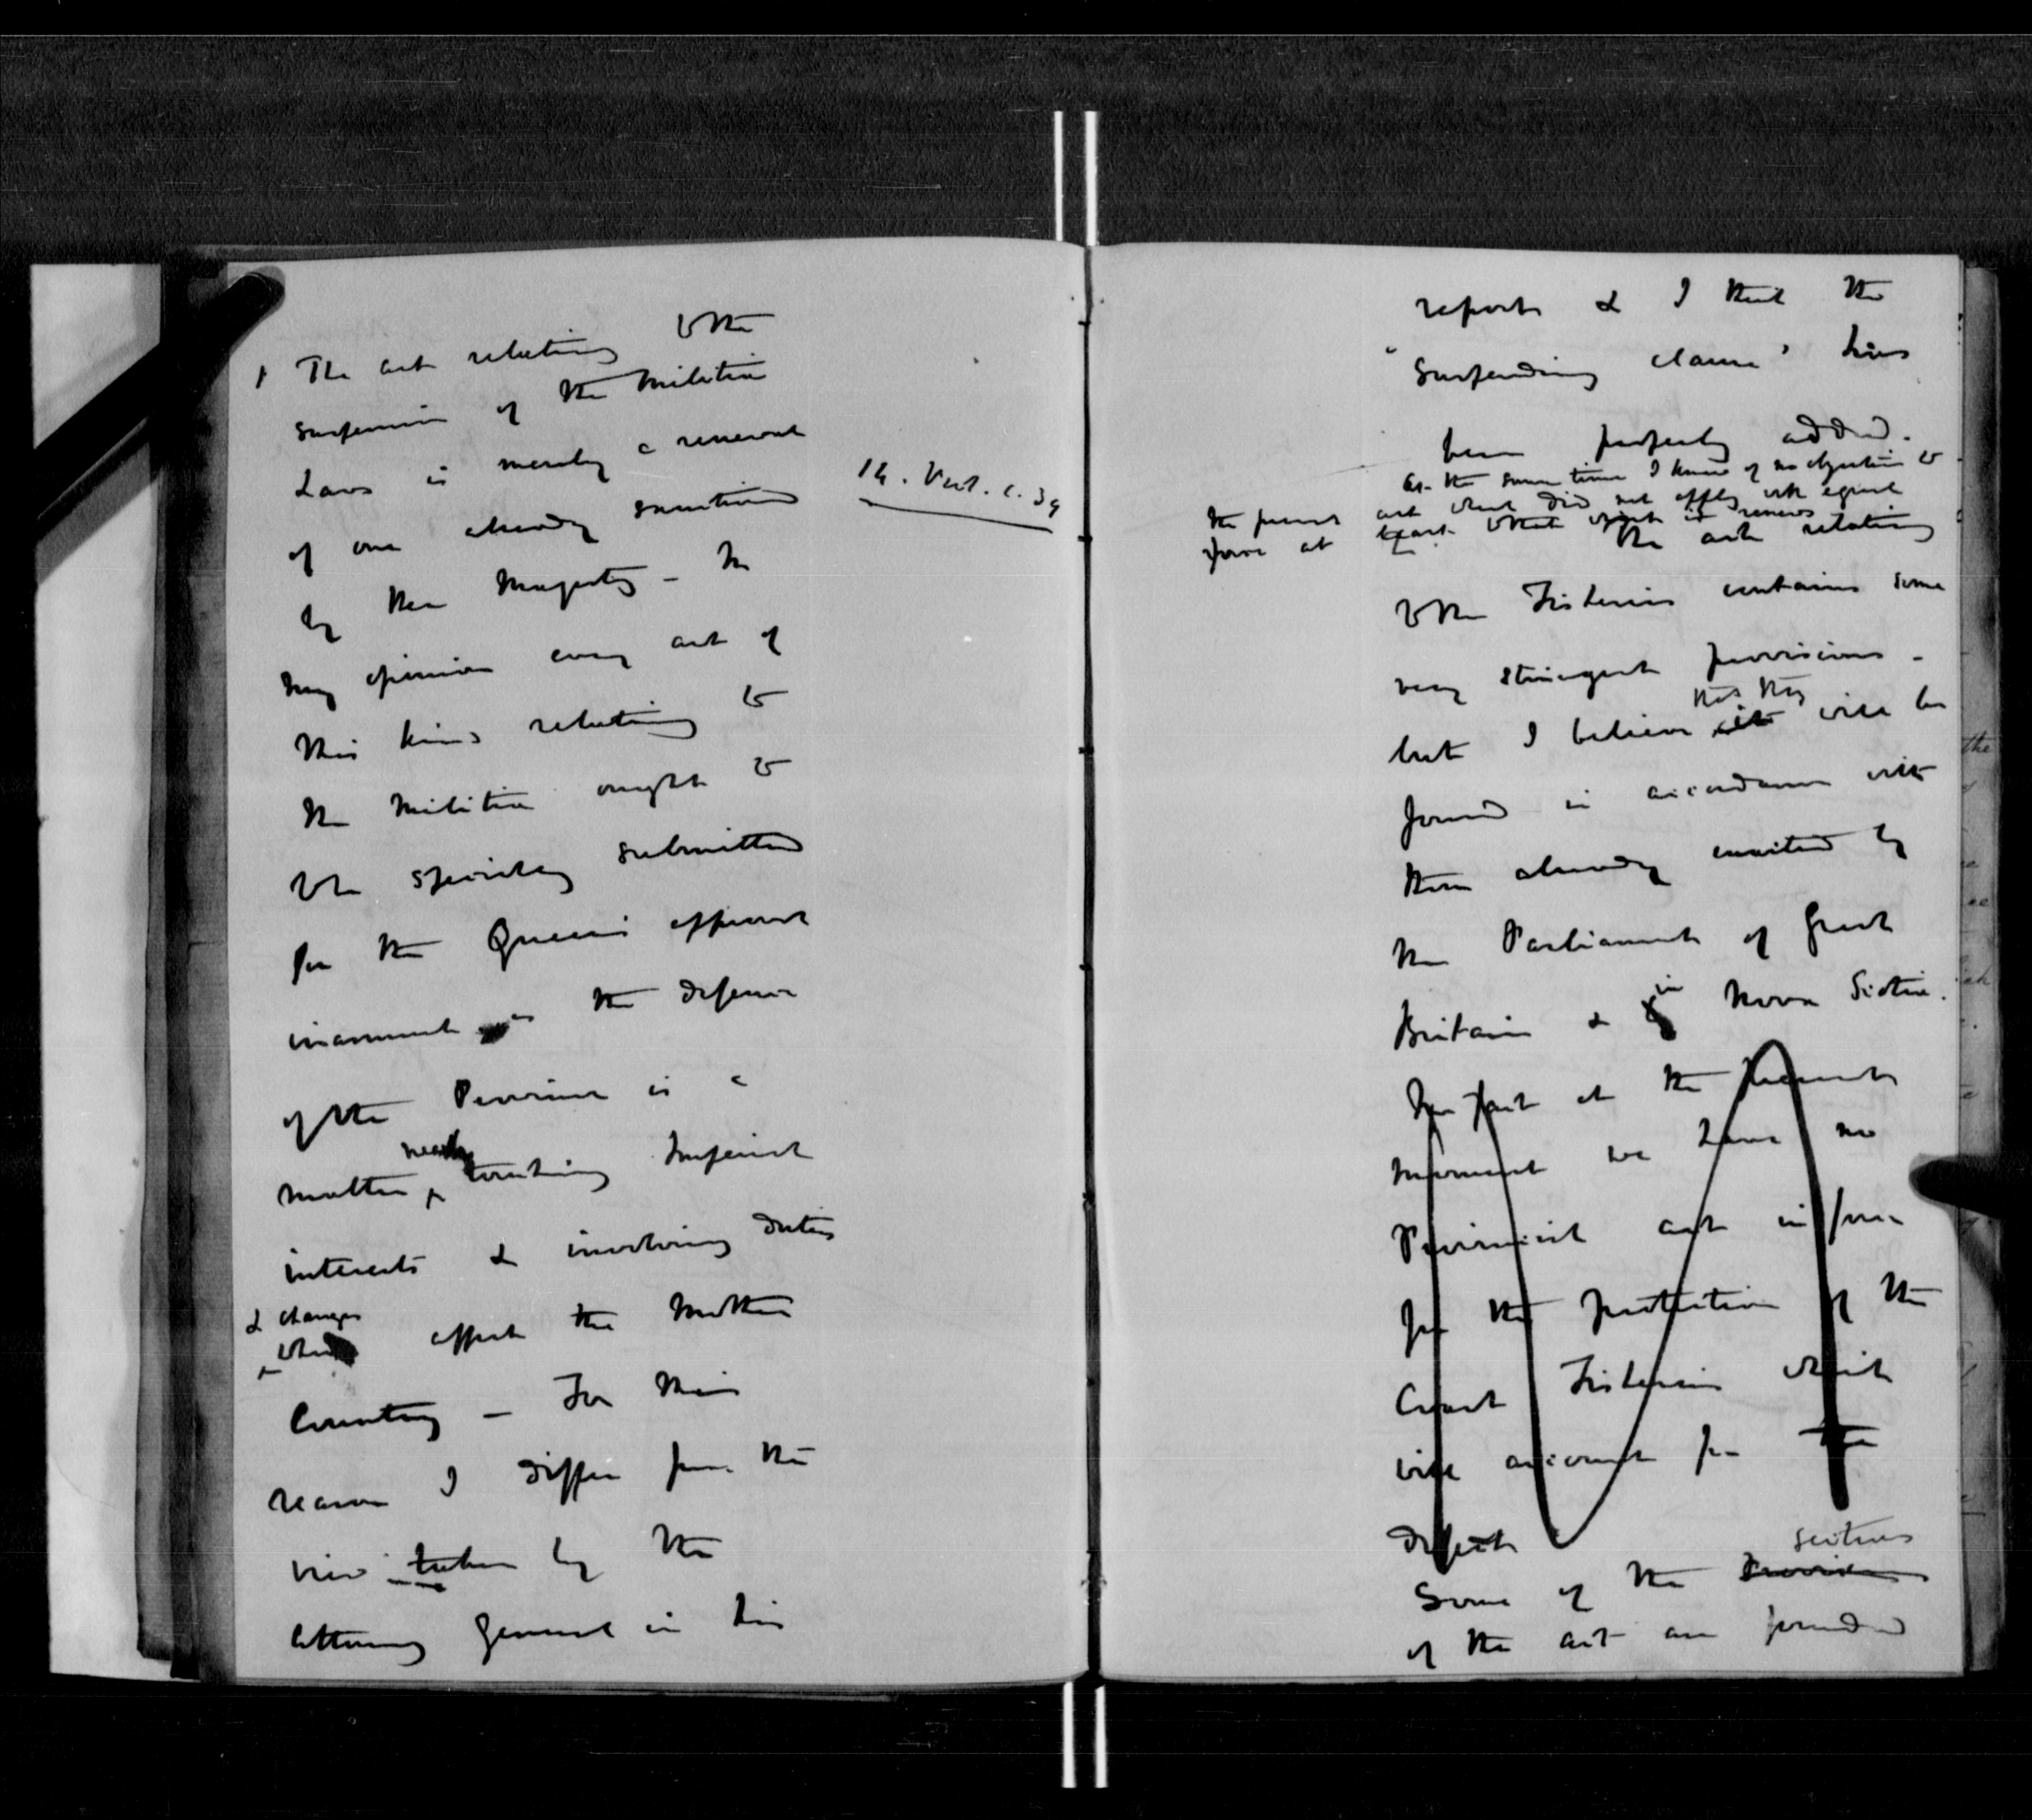 1 The act relating to the
suspension of the Militia
Laws is merely a renewal
of one already sanctioned
14. Vict. c. 39
by Her Majesty - In
my opinion every act of
this kind relating to
the Militia ought to
be specially submitted
for the Queen's approval
inasmuch as the defence
of the Province is a
matter nearly touching Imperial
interests & involving duties
& charges
which affect the Mother
Country - For this
reason I differ from the
view taken by the
Attorney General in his
report & I think the
"Suspending clause" has
been properly added.
At the same time I know of no objection to
the present act which did not apply with equal
force at least to that which it renews
The act relating
to the Fisheries contains some
very stringent provisions -
that they
but I believe it will be
found in accordance with
those already enacted by
the Parliament of Great
Britain & in Nova Scotia.
In fact at the present
moment we have no
Provincial act in force
for the protection of the
Coast Fisheries which
will account for the
defect
sections
Some of the Provisions
of the act are founded